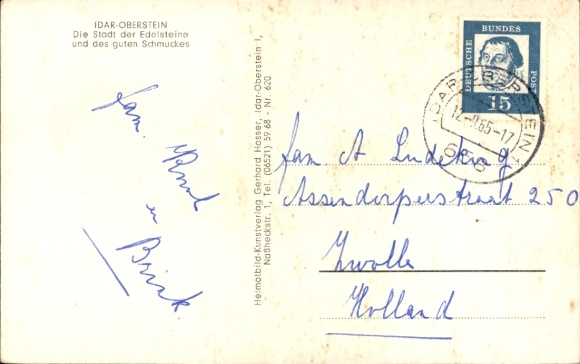 IDAR-OBERSTEIN
Die Stadt der Edelsteine
und des guten Schmuckes
fam.
en
Brink
Heimatbild-Kunstverlag Gerhard Hosser, Idar-Oberstein 1,
Naßheckstr. 1, Tel. (06521) 59 68 - Nr. 620
DEUTSCHE BUNDES POST
15
IDAR-OBERSTEIN 1
12.-9.65-17
658
fam A Ludeking
Assendorperstraat 250
Zwolle
Holland